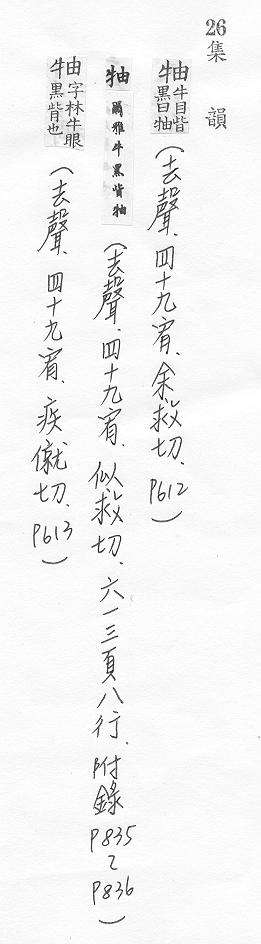 26 集韻
牰 牛目眥黑曰牰(去聲、四十九宥、余救切、P612)
牰 爾雅牛黑眥牰(去聲、四十九宥、似救切、六一三頁八行、附錄P835~P836)
牰 字林牛眼黑眥也(去聲、四十九宥、疾僦切、P613)